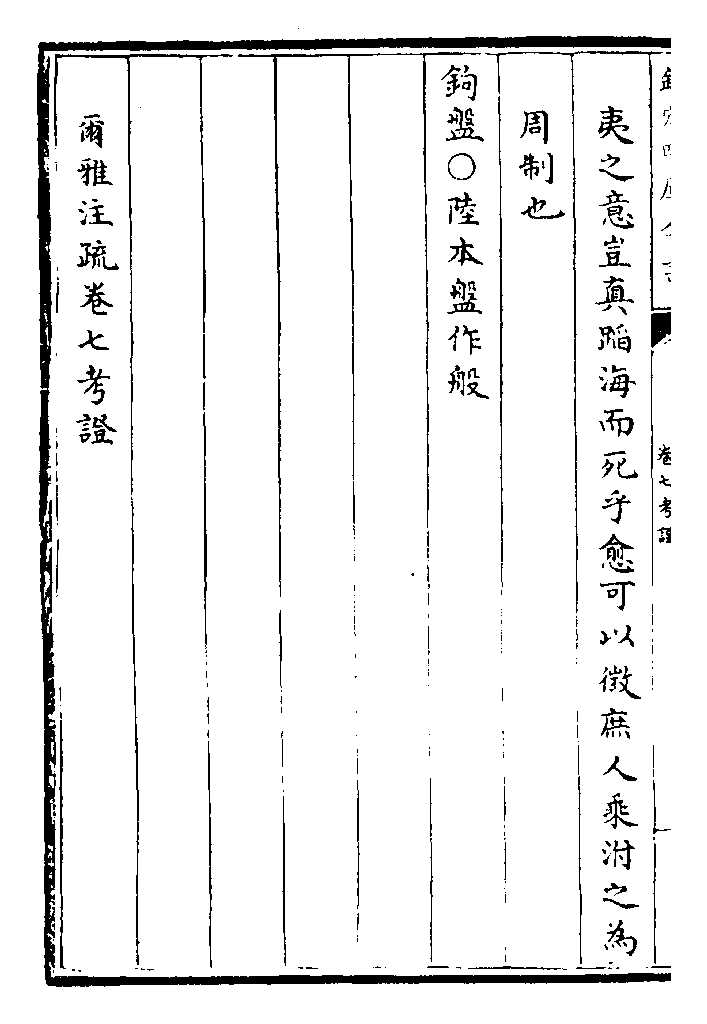 夷之意豈真蹈海而死乎愈可以徵庶人乘泭之為
周制也
鉤盤○陸本盤作般
爾雅注疏卷七考證
卷七考證